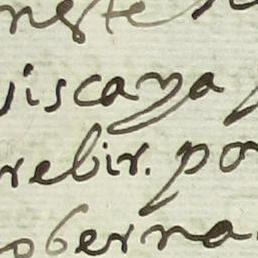 neste
viscaya
rebir. por
oberna